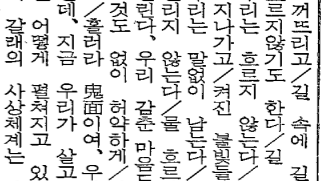 꺼뜨리고/길 속에 길
르지않기도 한다/길
리는 흐르지 않는다/
지나가고/켜진 불빛들
리는 말없이 남는다/
리지 않는다/물 흐르
린다, 우리 감춘 마음든
것도 없이 허약하게/
/흘러라 鬼面이여, 우
데, 지금 우리가 살고
어떻게 펼쳐지고 있
갈래의 사상체계는